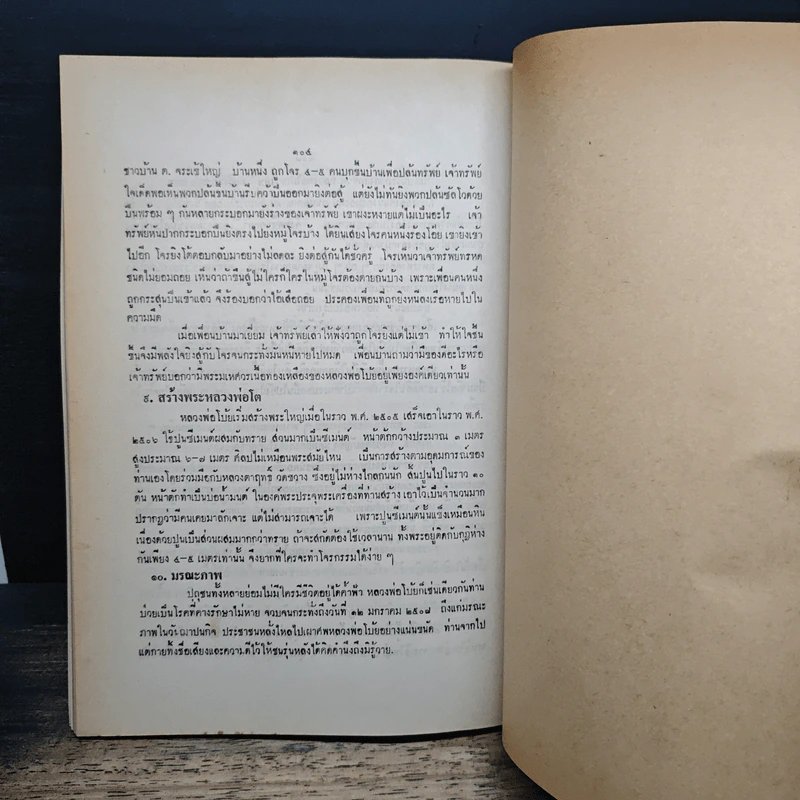 ๑๐๔
ชาวบ้าน ต. จระเข้ใหญ่ บ้านหนึ่ง ถูกโจร ๔-๕ คนบุกขึ้นบ้านเพื่อปล้นทรัพย์ เจ้าทรัพย์
ใจเด็ดพอเห็นพวกปล้นขึ้นบ้านรีบคว้าปืนออกมายิงต่อสู้ แต่ยังไม่ทันยิงพวกปล้นซัลโวด้วย
ปืนพร้อม ๆ กันหลายกระบอกมายังร่างของเจ้าทรัพย์ เขาผงะหงายแต่ไม่เป็นอะไร เจ้า
ทรัพย์หันปากกระบอกปืนยิงตรงไปยังหมู่โจรบ้าง ได้ยินเสียงโจรคนหนึ่งร้องโอ๊ย เขายิงเข้า
ไปอีก โจรยิงโต้ตอบกลับมาอย่างไม่ลดละ ยิงต่อสู้กันได้ชั่วครู่ โจรเห็นว่าเจ้าทรัพย์ทรหด
ชนิดไม่ยอมถอย เห็นว่าถ้าขืนสู้ไม่ใครก็ใครในหมู่โจรต้องตายกันบ้าง เพราะเพื่อนคนหนึ่ง
ถูกกระสุนปืนเข้าแล้ว จึงร้องบอกว่าไอ้เสือถอย ประคองเพื่อนที่ถูกยิงหนีลงเรือหายไปใน
ความมืด
เมื่อเพื่อนบ้านมาเยี่ยม เจ้าทรัพย์เล่าให้ฟังว่าถูกโจรยิงแต่ไม่เข้า ทำให้ใจชื้น
ขึ้นจึงมีพลังใจยิงสู้กับโจรจนกระทั่งมันหนีหายไปหมด เพื่อนบ้านถามว่ามีของดีอะไรหรือ
เจ้าทรัพย์บอกว่ามีพระมเหศวรเนื้อทองเหลืองของหลวงพ่อโบ้ยอยู่เพียงองค์เดียวเท่านั้น
๙. สร้างพระหลวงพ่อโต
หลวงพ่อโบ้ยเริ่มสร้างพระใหญ่เมื่อในราว พ.ศ. ๒๕๐๕ เสร็จเอาในราว พ.ศ.
๒๕๐๖ ใช้ปูนซีเมนต์ผสมกับทราย ส่วนมากเป็นซีเมนต์ หน้าตักกว้างประมาณ ๓ เมตร
สูงประมาณ ๖-๗ เมตร ศิลปไม่เหมือนพระสมัยไหน เป็นการสร้างตามอุดมการณ์ของ
ท่านเองโดยร่วมมือกับหลวงตาฤทธิ์ วัดขวาง ซึ่งอยู่ไม่ห่างไกลกันนัก สิ้นปูนไปในราว ๑๐
ตัน หน้าตักทำเป็นบ่อน้ำมนต์ ในองค์พระประจุพระเครื่องที่ท่านสร้าง เอาไว้เป็นจำนวนมาก
ปรากฏว่ามีคนเคยมาลักเจาะ แต่ไม่สามารถเจาะได้ เพราะปูนซีเมนต์นั้นแข็งเหมือนหิน
เนื่องด้วยปูนเป็นส่วนผสมมากกว่าทราย ถ้าจะสกัดต้องใช้เวลานาน ทั้งพระอยู่ติดกับกุฏิห่าง
กันเพียง ๔-๕ เมตรเท่านั้น จึงยากที่ใครจะทำโจรกรรมได้ง่าย ๆ
๑๐. มรณะภาพ
ปุถุชนทั้งหลายย่อมไม่มีใครมีชีวิตอยู่ได้ค้ำฟ้า หลวงพ่อโบ้ยก็เช่นเดียวกันท่าน
ป่วยเป็นโรคที่คางรักษาไม่หาย จวบจนกระทั่งถึงวันที่ ๑๒ มกราคม ๒๕๐๗ ถึงแก่มรณะ
ภาพในวัฒาปนกิจ ประชาชนหลั่งไหลไปเผาศพหลวงพ่อโบ้ยอย่างแน่นขนัด ท่านจากไป
แต่กายทิ้งชื่อเสียงและความดีไว้ให้ชนรุ่นหลังได้คิดคำนึงถึงมิรู้วาย.